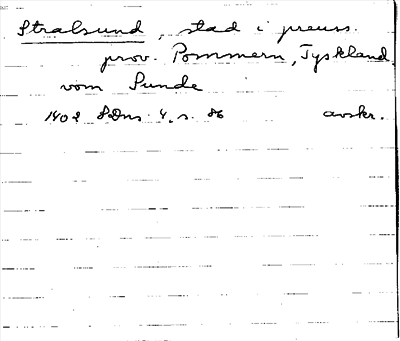 Stralsund, stad i preuss.
prov. Pommern, Tyskland.
vom Sunde
1402 SDns 4, s. 86 avskr.